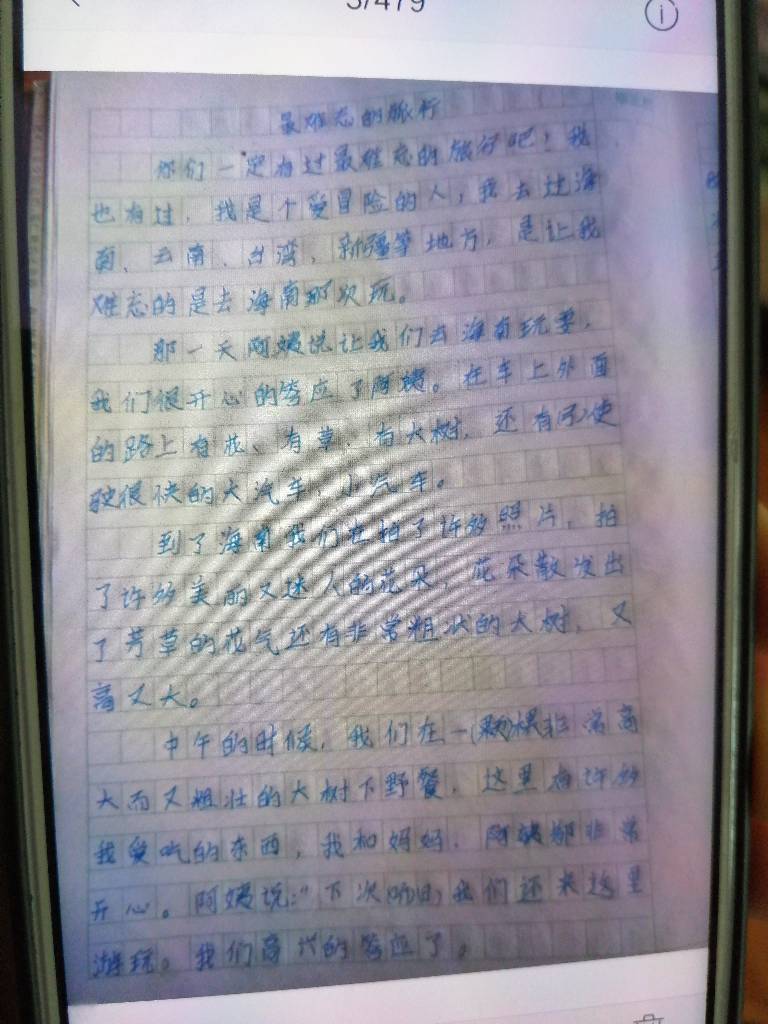 3/479
最难忘的旅行
你们一定有过最难忘的旅行吧！我
也有过，我是个爱冒险的人，我去过海
南、云南、台湾，新疆等地方，是让我
难忘的是去海南那次玩。
那一天阿姨说让我们去海南玩耍，
我们很开心的答应了阿姨。在车上外面
的路上有花、有草、有大树，还有使
驶很快的大汽车，小汽车。
到了海南我们在拍了许多照片，拍
了许多美丽又迷人的花朵，花朵散发出
了芳草的花气还有非常粗状的大树，又
高又大。
中午的时候，我们在一棵非常高
大而又粗壮的大树下野餐，这里有许多
我爱吃的东西，我和妈妈，阿姨都非常
开心。阿姨说：“下次我们还来这里
游玩。我们高兴的答应了。